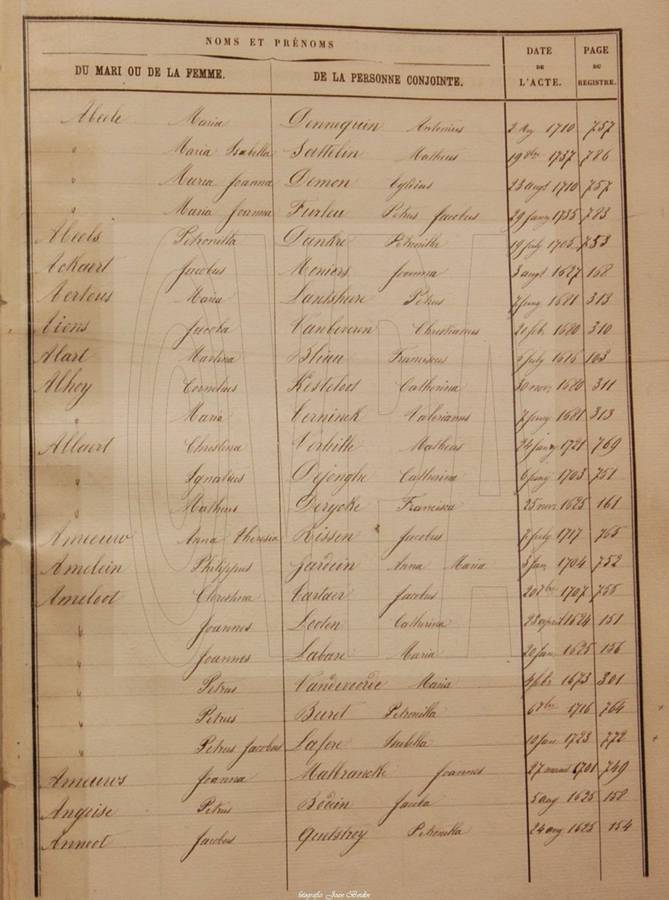 NOMS ET PRÉNOMS DATE PAGE
DU MARI OU DE LA FEMME. DE LA PERSONNE CONJOINTE. DE L'ACTE. DU REGISTRE.
Abeele Maria Dennequin Antonius 2 May 1710 757
" Maria Isabella Sattelin Matheus 19 8bre 1737 786
" Maria Joanna Demon Egidius 23 augt 1710 757
" Maria Joanna Furleu Petrus Jacobus 29 Janry 1735 783
Abeels Petronilla Dankre Petronille 19 July 1705 753
Ackaert Jacobus Moniers Joanna 3 augt 1627 168
Aertous Maria Lantshere Petrus 7 Janry 1681 313
Aiens Jacoba Vanbeveren Christianus 21 feb. 1680 310
Alart Martina Bliau Franciscus 2 July 1616 103
Alhoy Cornelius Kesteloot Catherina 30 novr. 1680 311
" Maria Cerninck Valerianus 7 Janry 1681 313
Allaert Christina Verhille Matheus 24 Janry 1721 769
" Ignatius Dejonghe Catherina 6 1703 751
" Matheus Derycke Francisca 25 novr. 1625 161
Ameeuw Anna Theresia Rissen Jacobus 7 July 1717 765
Amelein Philippus Jardein Anna Maria 5 Jan 1704 752
Ameloot Christina Cartaer Jacobus 20 1707 755
" Joannes Looten Catherina 28 april 1624 151
" Joannes Labare Maria 20 Jan 1625 156
" Petrus Vandevoorde Maria 1673 301
" Petrus Beert Petronilla 6 7bre 1716 764
" Petrus Jacobus Lafere Isabella 12 Jan 1723 772
Ameuws Joanna Maltrancke Joannes 27 1701 749
Angeise Petrus Bedein Jacoba 5 aug 1625 158
Annoot Jacobus Quetstroy Petronilla 24 aug 1625 154
fotografie Joan Bordin